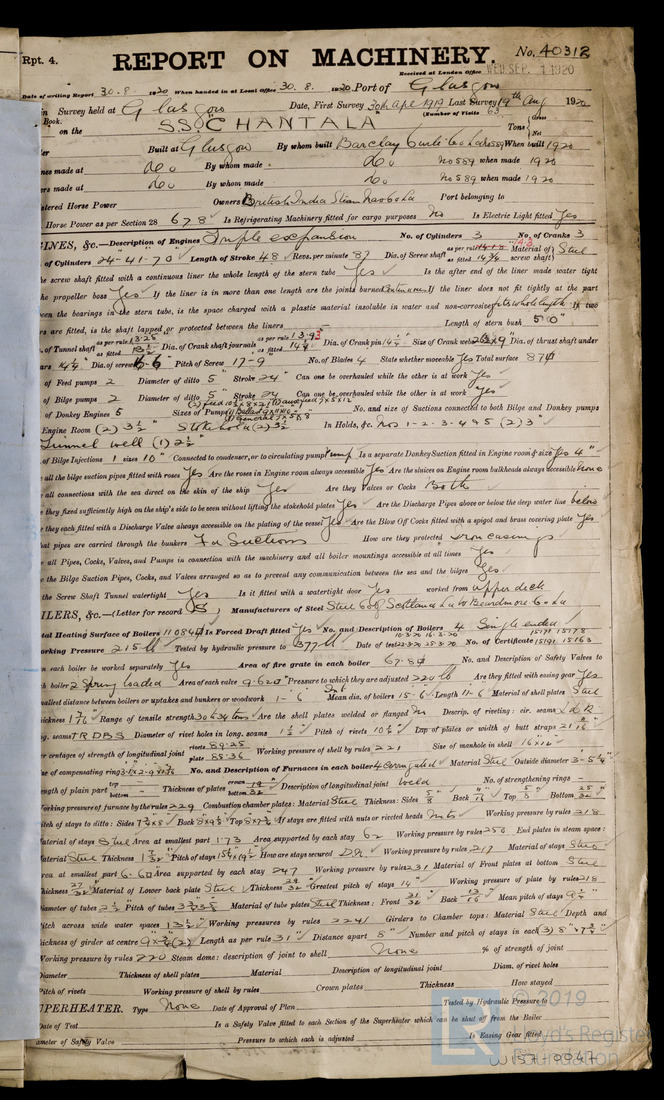 Rpt. 4.
REPORT ON MACHINERY.
No. 40312
Received at London Office WED. SEP. 1 1920
Date of writing Report 30.8. 1920 When handed in at Local Office 30.8. 1920 Port of Glasgow
in Survey held at Glasgow Date, First Survey 30th Apl 1919 Last Survey 19th Aug 1920
Book. (Number of Visits 63
on the S.S. "CHANTALA" Tons Gross Net
Built at Glasgow By whom built Barclay Curle & Co Ld No 589 When built 1920
nes made at do. By whom made do. No 589 when made 1920
rs made at do. By whom made do. No 589 when made 1920
stered Horse Power Owners British India Steam Nav Co Ld Port belonging to
Horse Power as per Section 28 678 Is Refrigerating Machinery fitted for cargo purposes No Is Electric Light fitted Yes
GINES, &c.—Description of Engines Triple expansion No. of Cylinders 3 No. of Cranks 3
of Cylinders 24-41-70 Length of Stroke 48 Revs. per minute 87 Dia. of Screw shaft as per rule as fitted 14 3/4 Material of screw shaft Steel
he screw shaft fitted with a continuous liner the whole length of the stern tube Yes Is the after end of the liner made water tight
he propeller boss Yes If the liner is in more than one length are the joints burned Continuous If the liner does not fit tightly at the part
een the bearings in the stern tube, is the space charged with a plastic material insoluble in water and non-corrosive fits whole length If two
ers are fitted, is the shaft lapped or protected between the liners Length of stern bush 5'0"
of Tunnel shaft as per rule 13.28 as fitted 13 1/2 Dia. of Crank shaft journals as per rule 13.93 as fitted 14 1/4 Dia. of Crank pin 14 1/4 Size of Crank webs Dia. of thrust shaft under
ars 14 1/4 Dia. of screw Pitch of Screw 17-9" No. of Blades 4 State whether moveable Yes Total surface 87
of Feed pumps 2 Diameter of ditto 5" Stroke 24" Can one be overhauled while the other is at work Yes
of Bilge pumps 2 Diameter of ditto 5" Stroke 24 Can one be overhauled while the other is at work Yes
of Donkey Engines 5 Sizes of Pumps No. and size of Suctions connected to both Bilge and Donkey pumps
Engine Room (2) 3 1/2" Stokehold (2) 3 1/2" In Holds, &c. Nos 1-2-3-4 & 5 (2) 3"
Tunnel well (1) 2 1/2"
of Bilge Injections 1 sizes 10" Connected to condenser, or to circulating pump Pump Is a separate Donkey Suction fitted in Engine room & size Yes 4"
all the bilge suction pipes fitted with roses Yes Are the roses in Engine room always accessible Yes Are the sluices on Engine room bulkheads always accessible None
all connections with the sea direct on the skin of the ship Yes Are they Valves or Cocks Both
they fixed sufficiently high on the ship's side to be seen without lifting the stokehold plates Yes Are the Discharge Pipes above or below the deep water line below
they each fitted with a Discharge Valve always accessible on the plating of the vessel Yes Are the Blow Off Cocks fitted with a spigot and brass covering plate Yes
at pipes are carried through the bunkers Fd Suctions How are they protected iron casings
all Pipes, Cocks, Valves, and Pumps in connection with the machinery and all boiler mountings accessible at all times Yes
the Bilge Suction Pipes, Cocks, and Valves arranged so as to prevent any communication between the sea and the bilges Yes
the Screw Shaft Tunnel watertight Yes Is it fitted with a watertight door Yes worked from Upper deck
ILERS, &c.—(Letter for record S) Manufacturers of Steel Steel Co of Scotland Ld & Beardmore & Co Ld
tal Heating Surface of Boilers 11054 Is Forced Draft fitted Yes No. and Description of Boilers 4 Single ended
orking Pressure 215 lb Tested by hydraulic pressure to 377 lb Date of test No. of Certificate
n each boiler be worked separately Yes Area of fire grate in each boiler 67.8 No. and Description of Safety Valves to
h boiler 2 Spring loaded Area of each valve 9.62 Pressure to which they are adjusted 220 lb Are they fitted with easing gear Yes
allest distance between boilers or uptakes and bunkers or woodwork 1-6" Mean dia. of boilers 15-6 Length 11-6 Material of shell plates Steel
ickness Range of tensile strength Are the shell plates welded or flanged No Descrip. of riveting: cir. seams
ng. seams T.R.D.B.S Diameter of rivet holes in long. seams Pitch of rivets 10 Lap of plates or width of butt straps
er centages of strength of longitudinal joint rivets 89.25 plate 85.36 Working pressure of shell by rules 221 Size of manhole in shell 16 x 12"
ze of compensating ring No. and Description of Furnaces in each boiler 4 Corrugated Material Steel Outside diameter
ength of plain part top bottom Thickness of plates crown bottom Description of longitudinal joint Weld No. of strengthening rings
orking pressure of furnace by the rules 229 Combustion chamber plates: Material Steel Thickness: Sides 5/8 Back Top 5/8 Bottom
itch of stays to ditto: Sides Back Top If stays are fitted with nuts or riveted heads Nuts Working pressure by rules 218
aterial of stays Steel Area at smallest part 1.73 Area supported by each stay 62 Working pressure by rules 250 End plates in steam space:
aterial Steel Thickness Pitch of stays How are stays secured D.N. Working pressure by rules 217 Material of stays Steel
rea at smallest part Area supported by each stay 247 Working pressure by rules 231 Material of Front plates at bottom Steel
hickness Material of Lower back plate Steel Thickness Greatest pitch of stays 14" Working pressure of plate by rules 218
iameter of tubes 2 1/2 Pitch of tubes Material of tube plates Steel Thickness: Front Back Mean pitch of stays
itch across wide water spaces 13 1/2 Working pressures by rules 224 Girders to Chamber tops: Material Steel Depth and
hickness of girder at centre Length as per rule 31" Distance apart 8" Number and pitch of stays in each (3) 8
Working pressure by rules 220 Steam dome: description of joint to shell None % of strength of joint
Diameter Thickness of shell plates Material Description of longitudinal joint Diam. of rivet holes
Pitch of rivets Working pressure of shell by rules Crown plates Thickness How stayed
UPERHEATER. Type None Date of Approval of Plan Tested by Hydraulic Pressure to
Date of Test Is a Safety Valve fitted to each Section of the Superheater which can be shut off from the Boiler
iameter of Safety Valve Pressure to which each is adjusted Is Easing Gear fitted
© 2019
Lloyd's Register
Foundation
W157-0047